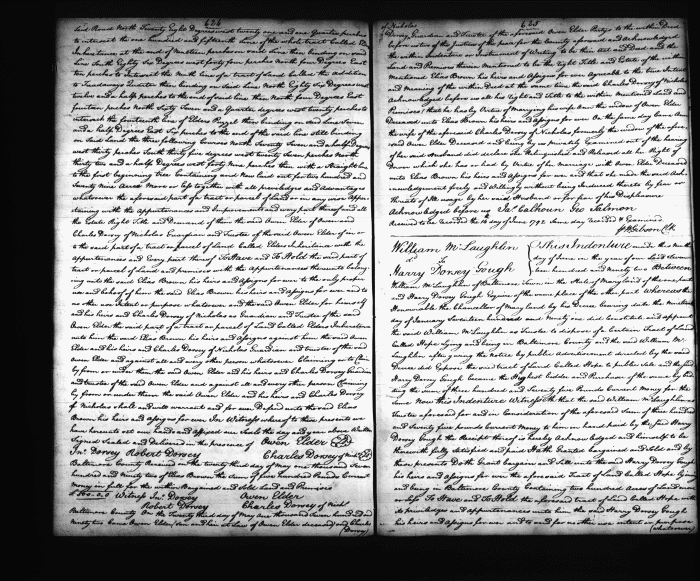 624
said Road North Twenty Eight Degrees west twenty one and one Quarter perches
to intersect the one hundred and fifteenth Line of the whole tract called
Inheritance at the end of Nineteen perches on said Line then binding on said
Line South Eighty Six Degrees west forty four perches North four Degrees East
ten perches to intersect the Ninth line of a tract of Land called the addition
to then binding on said line North Eighty Six Degrees west
twelve and a half perches to the end of said line then North four Degrees East
fourteen perches North Sixty Seven and a Quarter degrees west twenty perches to
intersect the fourteenth line of Elders then binding on said line South
and a half Degrees East Six perches to the end of the said line still binding
on said Land the three following Courses North Twenty Seven and a half Degrees
west thirty perches South thirty five degrees west twenty Seven perches North
thirty two and a half Degrees west forty Nine perches then with a Straight line
to the first beginning Tree Containing and Now laid out for two hundred and
Seventy Nine Acres More or less together with all priviledges and advantages
whatsoever the aforesaid part of a tract or parcel of Land or in any wise apper-
taining with the appurtenances and Improvements and every part thereof and all
the Estate Right Title and Demand of them the said Owen Elder of Owen and
Charles Dorsey of Nicholas Guardian and Trustee of the said Owen Elder of in or
to the said part of a tract or parcel of Land called Elders Inheritance with the
appurtenances and Every part thereof To Have and To Hold the said part of
tract or parcel of Land and premises with the appurtenances thereunto belong-
ing unto the said Elias Brown his heirs and assigns for ever to the only proper
use and behoof of him the said Elias Brown his heirs and assigns for ever and to
no other use Intent or purpose whatsoever and the said Owen Elder for himself
and his heirs and Charles Dorsey of Nicholas as Guardian and Trustee of the said
Owen Elder the said part of a tract or parcel of Land called Elders Inheritance
unto him the said Elias Brown his heirs and assigns against him the said Owen
Elder and his heirs and Charles Dorsey of Nicholas Guardian and trustee of the said
Owen Elder and against all and every other person whatsoever Claiming or to Claim
by from or under them the said Owen Elder and his heirs and Charles Dorsey Guardian
and trustee of the said Owen Elder and against all and every other person Claiming
by from or under them the said Owen Elder and his heirs and Charles Dorsey
of Nicholas shall and will warrant and for ever Defend unto the said Elias
Brown his heirs and assigns for ever In Witness whereof to these presents we
have hereunto set our hands and affixed our Seals the day and year above Written
Signed Sealed and Delivered in the presence of Owen Elder
Jno Dorsey Robert Dorsey Charles Dorsey of Nichs
Baltimore County Received on the twenty third day of May one thousand Seven
hundred and Ninety two of Elias Brown the Sum of five hundred Pounds Current
money in full for the within Bargained and Sold Land and Premises
£500.0.0 Witness Jno. Dorsey Owen Elder
Robert Dorsey Charles Dorsey of Nichs
Baltimore County On the Twenty third day of May one thousand Seven hundred and
ninety two Came Owen Elder Son and heir at Law of Owen Elder deceased and Charles
(Dorsey)
625
of Nicholas
Dorsey Guardian and Trustee of the aforesaid Owen Elder Partys to the within Deed
before us two of the Justices of the peace for the County aforesaid and Acknowledged
the within Indenture or Instrument of Writing to be their Act and Deed and the
Land and Premises therein Mentioned to be the Right Title and Estate of the within
Mentioned Elias Brown his heirs and assigns for ever Agreeable to the true Intent
and Meaning of the within Deed at the same time the said Charles Dorsey of Nicholas
Acknowledged before us all his Right and Title to the within Mentioned Land and
Premises that he has by Virtue of Marrying his wife Ann the widow of Owen Elder
Deceased unto Elias Brown his heirs and assigns for ever On the same day Came Ann
the wife of the aforesaid Charles Dorsey of Nicholas formerly the widow of the afore-
said Owen Elder Deceased and being by us privately Examined out of the hearing
of her said Husband did declare She Relinquished and Released all her Right of
Dower which she has or had by Virtue of her marriage with Owen Elder Deceased
unto Elias Brown his heirs and assigns for ever and that she made the said Ack-
nowledgement freely and Willingly without being Induced thereto by fear or
Threats of Ill usage by her said Husband or for fear of his Displeasure
Acknowledged before us Ja. Calhoun Geo Salmon
Received to be recorded the 14 day of June 1792 Same day recorded & Examined
Gibson Clk
William McLaughlin
to
Harry Dorsey Gough
This Indenture made this Ninth
day of June in the year of our Lord Seven
teen hundred and Ninety two Between
William McLaughlin of Baltimore Town in the State of Maryland of the one part
and Harry Dorsey Gough Esquire of the same place of the other part Whereas the
Honourable the Chancellor of Maryland by his Decree bearing date the Nineteenth
day of January Seventeen hundred and Ninety one did Constitute and appoint
the said William McLaughlin as Trustee to dispose of a Certain Tract of Land
Called Hope Lying and being in Baltimore County and the said William Mc-
Laughlin after giving the notice by public Advertisement directed by the said
Decree did Expose the said tract of Land Called Hope to public Sale and the said
Harry Dorsey Gough became the Highest bidder and Purchaser of the same by bid-
ding the sum of three hundred and Twenty five Pounds Current Money for the
same Now this Indenture Witnesseth that the said William McLaughlin as
Trustee aforesaid for and in Consideration of the aforesaid Sum of three hundred
and Twenty five pounds Current Money to him in hand paid by the said Harry
Dorsey Gough the Receipt thereof is hereby Acknowledged and himself to be
therewith fully Satisfied and paid Hath Granted bargained and Sold and by
these presents Doth Grant bargain and Sell unto the said Harry Dorsey Gough
his heirs and Assigns for ever the aforesaid Tract of Land Called Hope lying
and being in Baltimore County Containing two hundred Acres of Land more
or less To Have and To Hold the aforesaid tract of Land Called Hope with
its priviledges and appurtenances unto him the said Harry Dorsey Gough
his heirs and Assigns for ever and to and for no other use intent or purpose
(whatsoever)